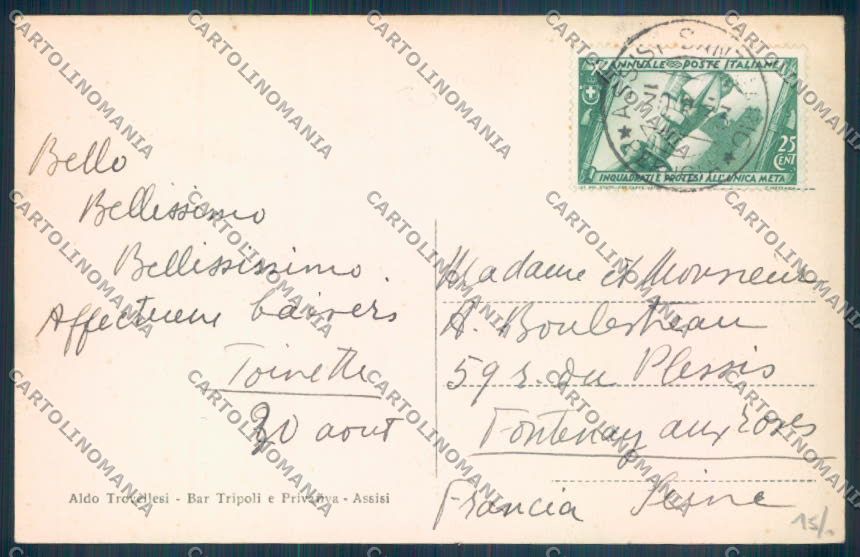 ANNUALE POSTE ITALIANE
25
CENT
INQUADRATI E PROTESI ALL'UNICA META
ASSISI
Bello
Bellissimo
Bellississimo.
Affectueux baisers
Toinette
30 aout
Aldo Trovellesi - Bar Tripoli e Privativa - Assisi
Madame et Monsieur
A. Boulestreau
59 r. du Plessis
Fontenay aux Roses
Francia Seine
15/.
CARTOLINOMANIA